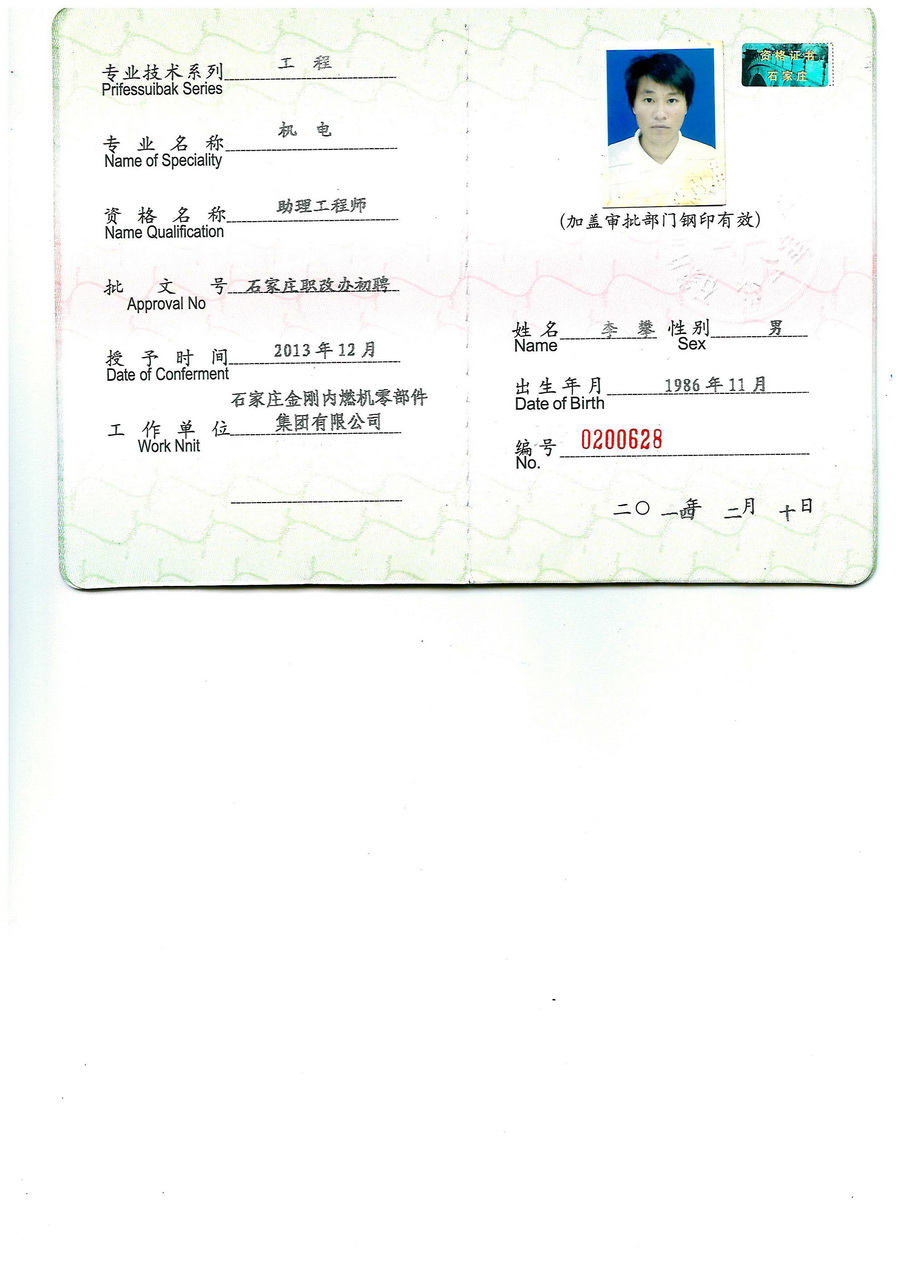 专业技术系列 工 程
Prifessuibak Series
专 业 名 称 机 电
Name of Speciality
资 格 名 称 助理工程师
Name Qualification
批 文 号 石家庄职改办初聘
Approval No
授 予 时 间 2013 年 12 月
Date of Conferment
石家庄金刚内燃机零部件
工 作 单 位 集团有限公司
Work Nnit
资格证书
石家庄
(加盖审批部门钢印有效)
姓 名 李 攀 性 别 男
Name Sex
出 生 年 月 1986 年 11 月
Date of Birth
编 号 0200628
No.
二〇一四年 二月 十日